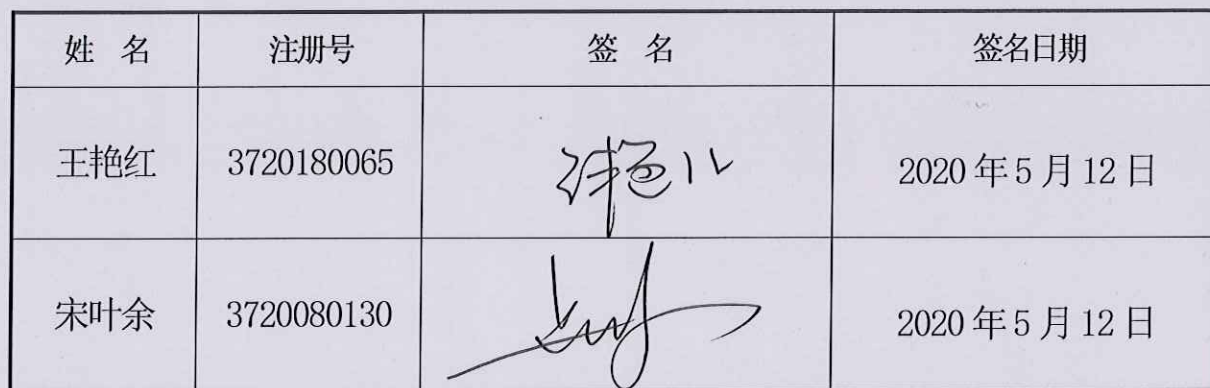 姓 名 注册号 签 名 签名日期
王艳红 3720180065 2020年5月12日
宋叶余 3720080130 2020年5月12日